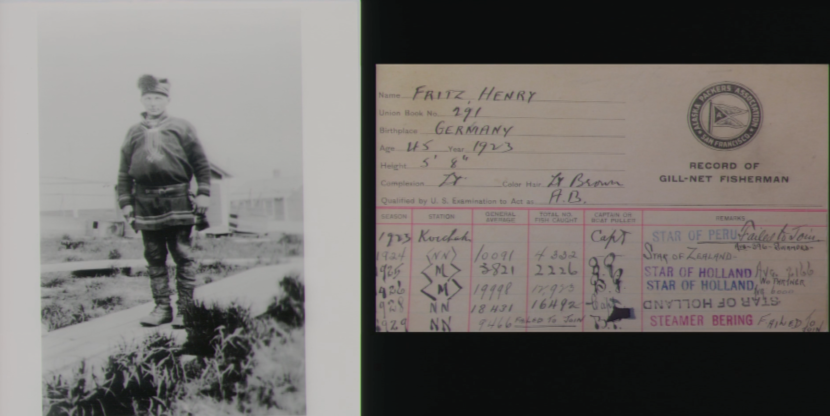 Name FRITZ, HENRY
Union Book No. 291
Birthplace GERMANY
Age 45 Year 1923
Height 5' 8"
Complexion Lt Color Hair Lt Brown
Qualified by U.S. Examination to Act as A.B.
ALASKA PACKERS ASSOCIATION
SAN FRANCISCO
RECORD OF
GILL-NET FISHERMAN
SEASON STATION GENERAL AVERAGE TOTAL NO. FISH CAUGHT CAPTAIN OR BOAT PULLER REMARKS
1923 Kvichak Capt STAR OF PERU Failed to Join
1924 NN 10091 4332 STAR OF ZEALAND
M 3821 2226 STAR OF HOLLAND
M 19998 STAR OF HOLLAND, No PARTNER
1928 NN 18431 16492 STAR OF HOLLAND
1929 NN 9466 FAILED TO JOIN STEAMER BERING